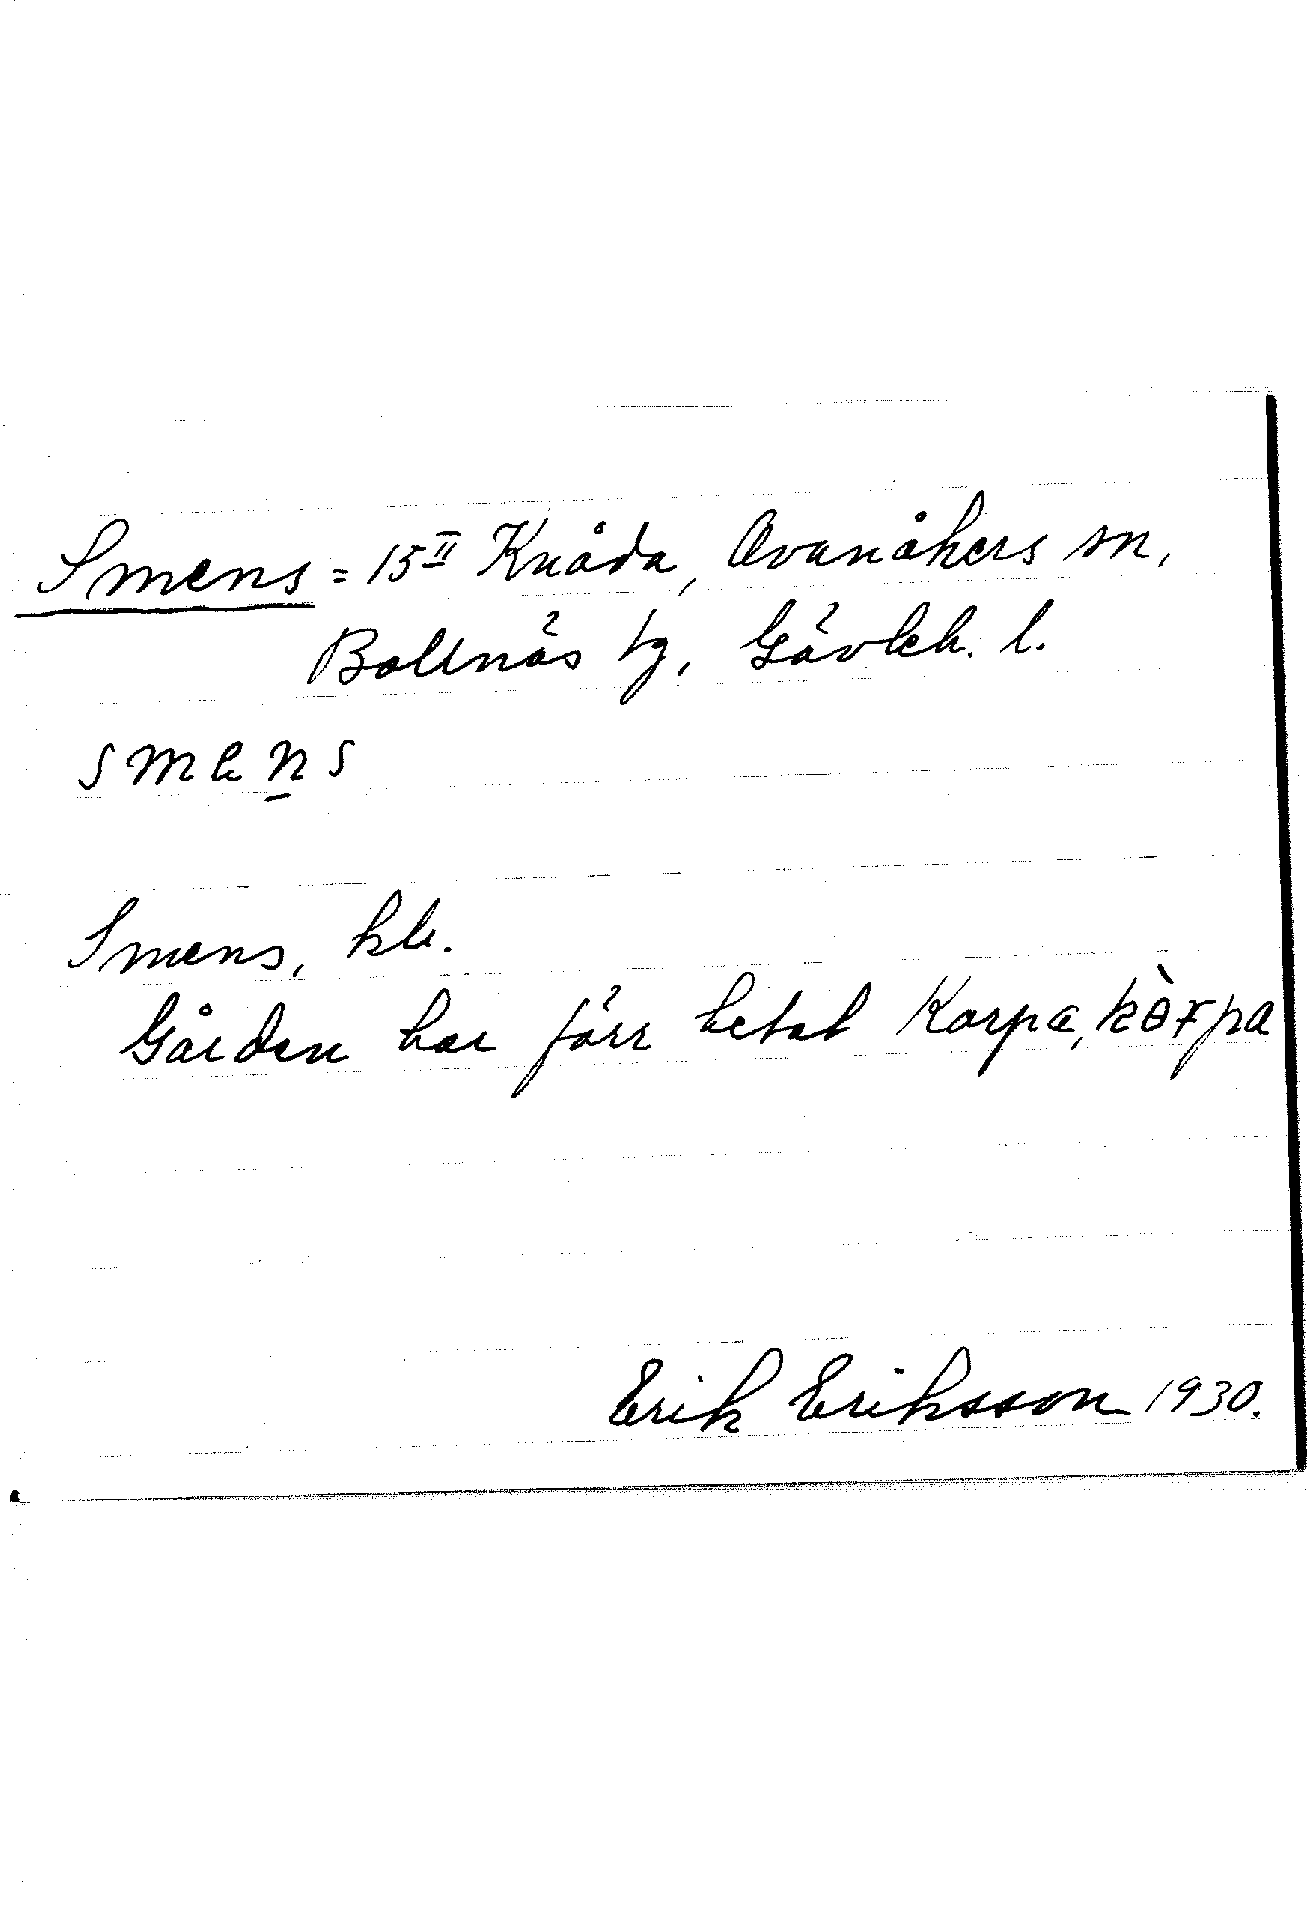 Smens = 15<sup>II</sup> Knåda, Ovanåkers sn,
Bollnäs tg, Gävleb. l.
smens
Smens, ble.
Gården har förr hetat Korpa, kòrpa
Erik Eriksson 1930.